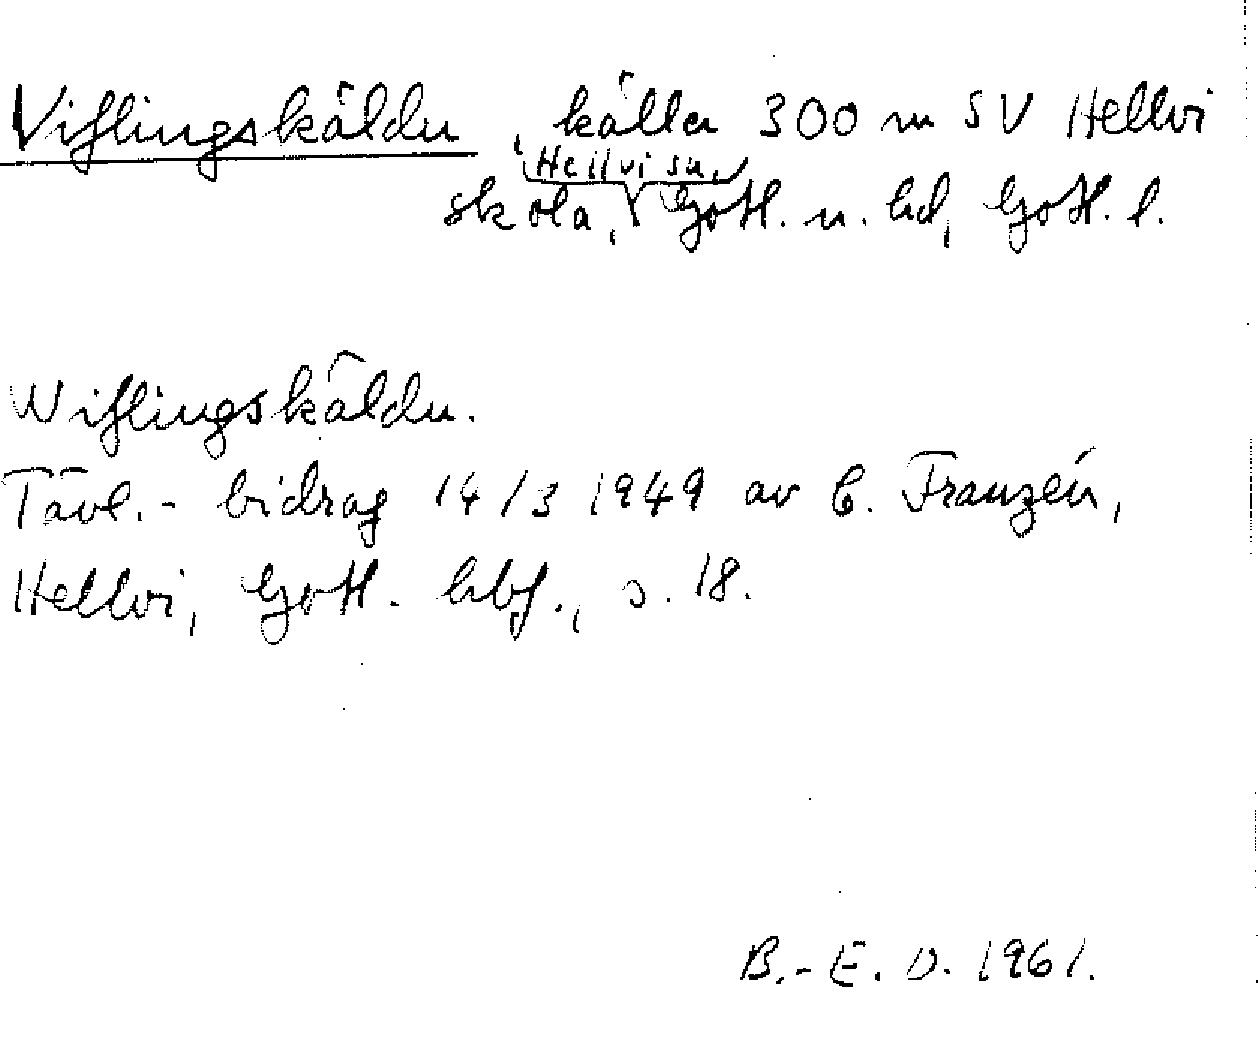 Viflingskäldu, källa 300 m SV Hellvi
Hellvi sn,
skola, Gotl. n. hd, Gotl. l.
Wiflingskäldu.
Tävl.- bidrag 14/3 1949 av C. Franzén,
Hellvi, Gotl. hbf., s. 18.
B.-E. D. 1961.